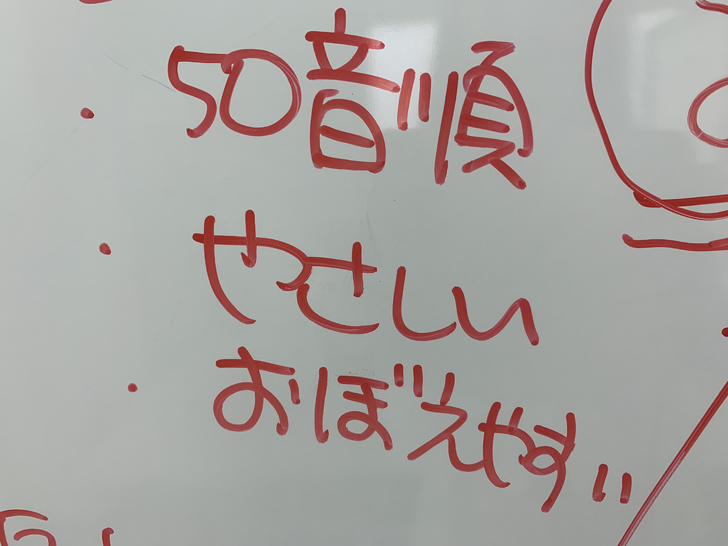 ・50音順
・やさしい
・おぼえやすい